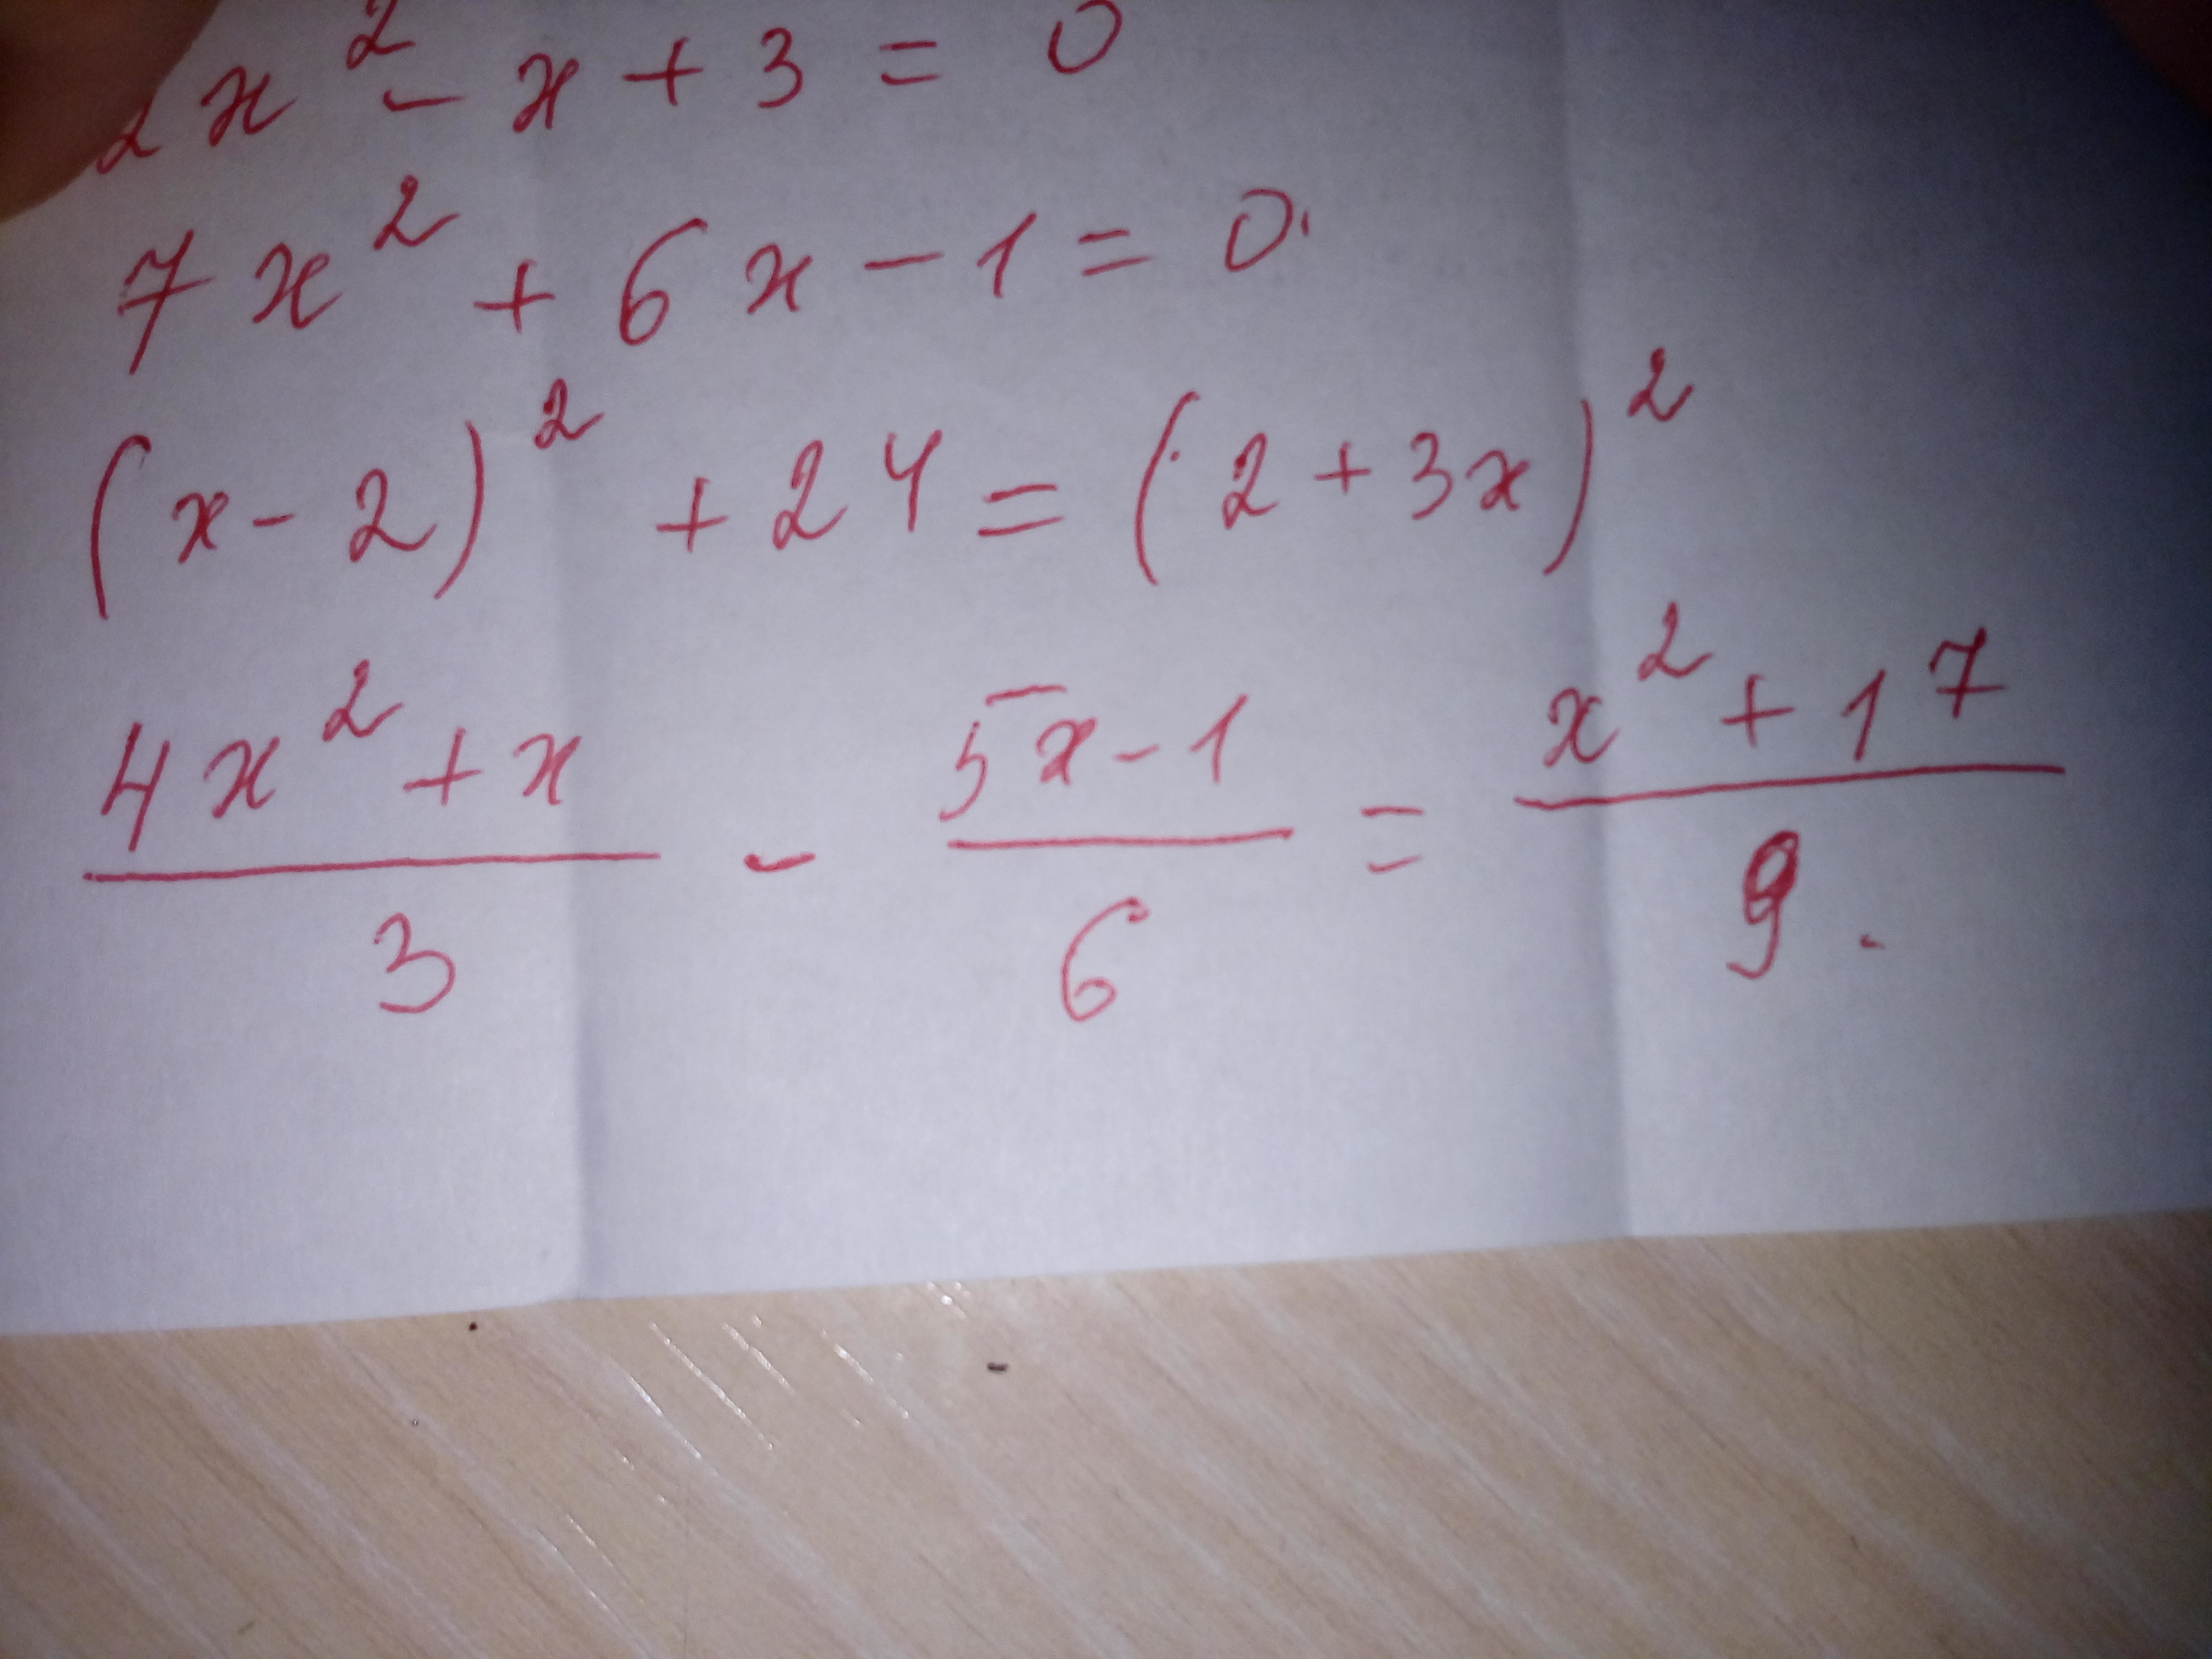 2x² - x + 3 = 0
7x² + 6x - 1 = 0.
(x - 2)² + 24 = (2 + 3x)²
(4x² + x)/3 - (5x - 1)/6 = (x² + 17)/9.